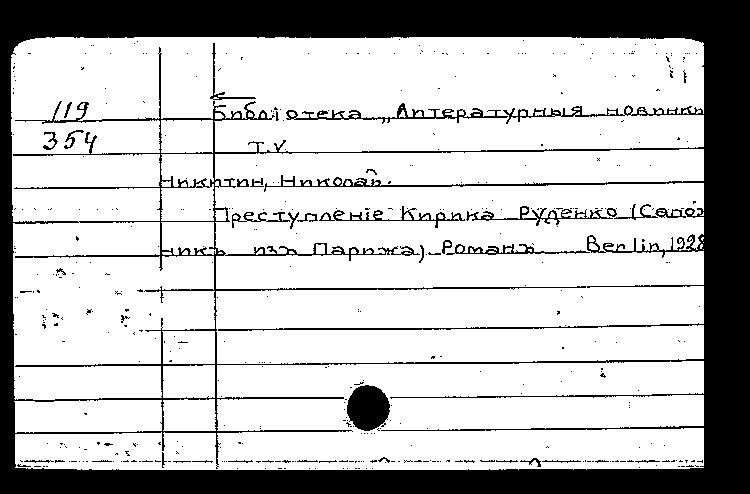 119
354
Библiотека „Литературныя новинки
T.V.
Никитин, Николай.
Преступленiе Кирика Руденко (Сапож
никъ изъ Парижа). Романъ Berlin, 1928